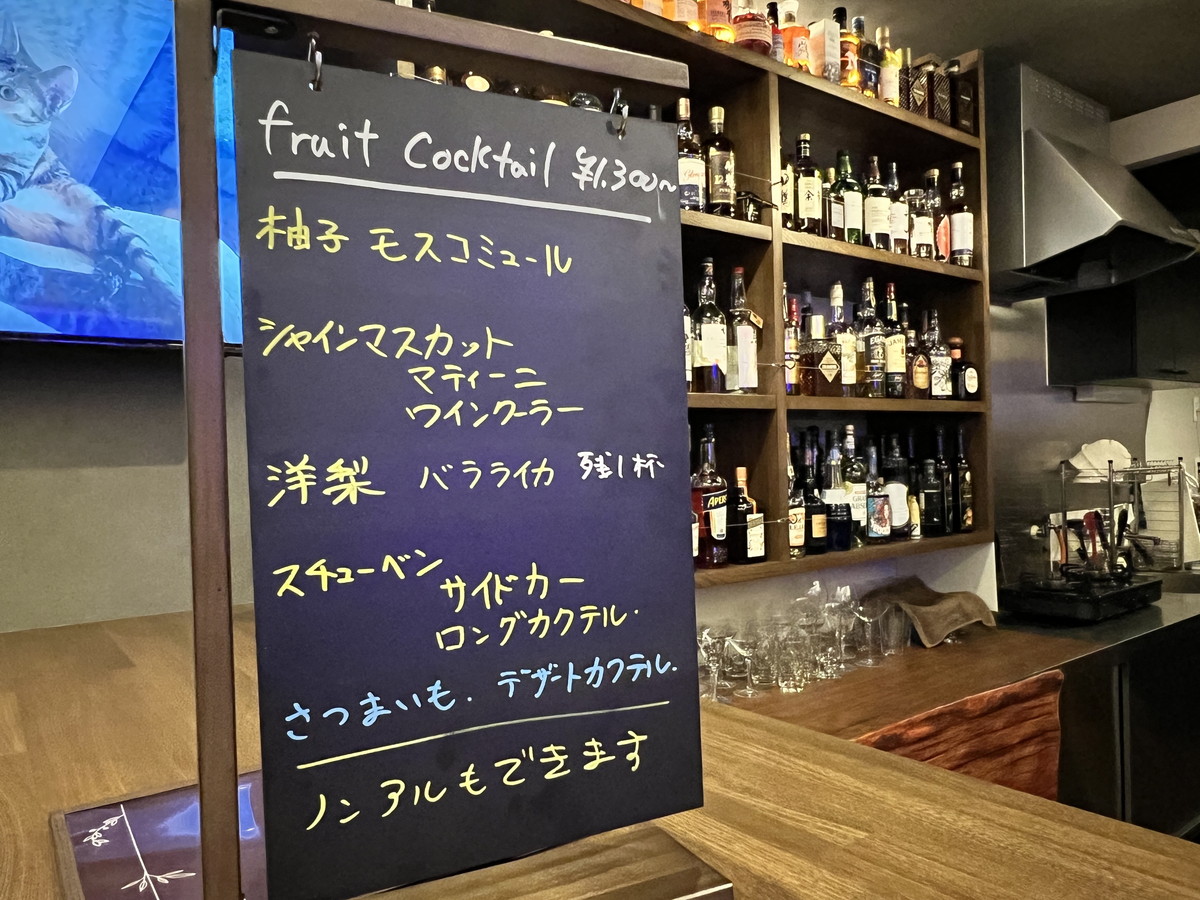 fruit Cocktail ¥1,300〜
柚子 モスコミュール
シャインマスカット
マティーニ
ワインクーラー
洋梨 バラライカ 残1杯
スチューベン
サイドカー
ロングカクテル.
さつまいも. デザートカクテル.
ノンアルもできます
APEROL